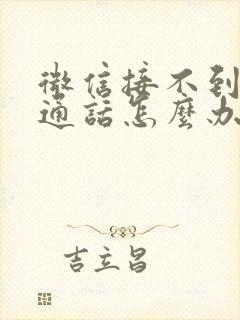 微信接不到
通話怎麼办
吉立昌